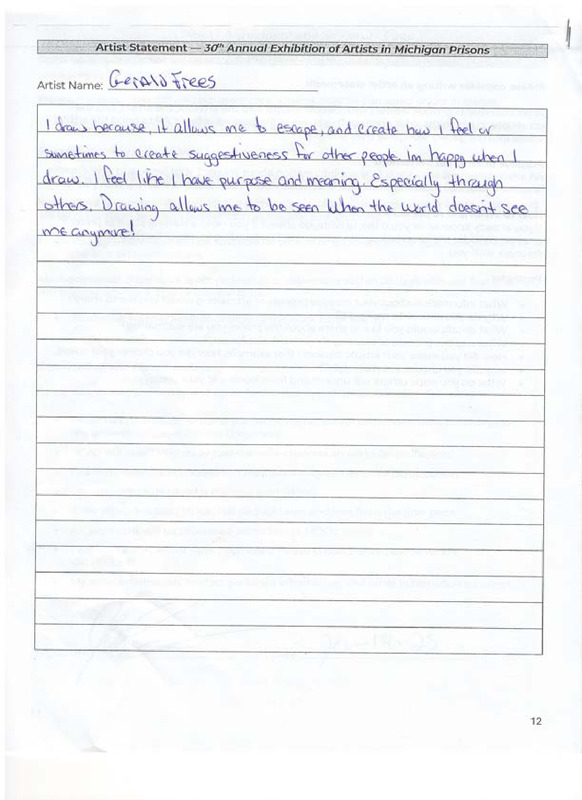 Artist Statement — 30th Annual Exhibition of Artists in Michigan Prisons
Artist Name: Gerald Frees
I draw because, it allows me to escape, and create how I feel or
sometimes to create suggestiveness for other people. Im happy when I
draw. I feel like I have purpose and meaning. Especially through
others. Drawing allows me to be seen when the world doesn't see
me anymore!
12